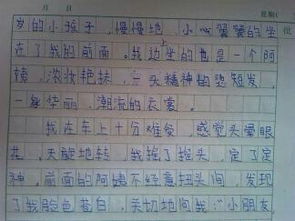 月 日 星期
岁的小孩子，慢慢地，小心翼翼的坐
在了我的前面。我边上坐的也是一个阿
姨，淡妆艳抹，一头精神的烫短发，
一身华丽、潮流的衣裳。
我在车上十分难受，感觉头晕眼
花，天旋地转，我摇了摇头，定了定
神，前面的阿姨不经意扭头间，发现
了我脸色苍白，关切地问我：“小朋友